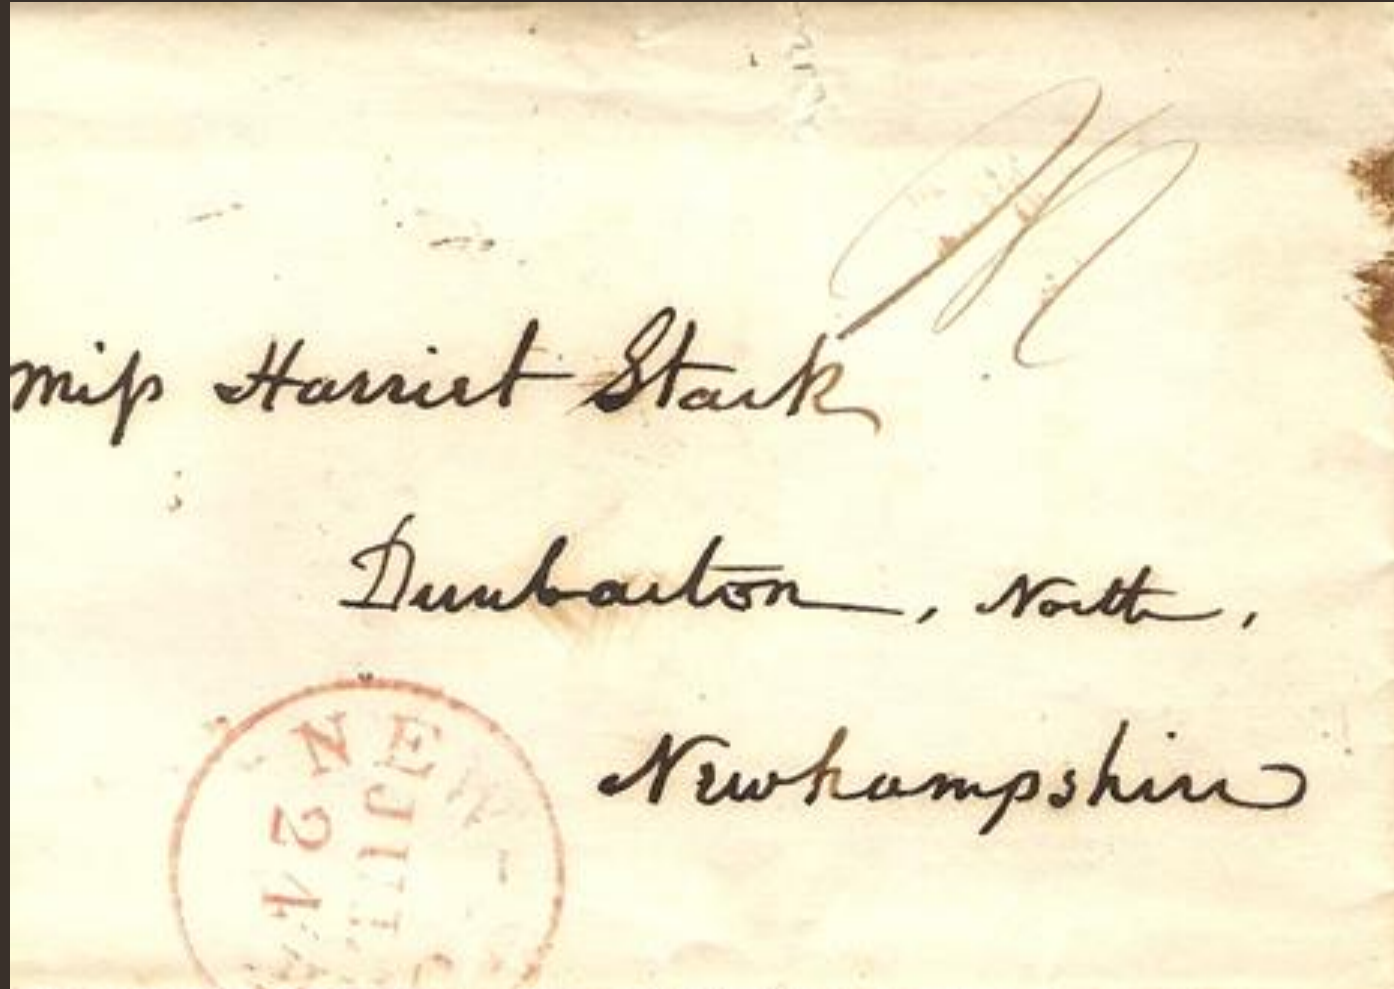 Miss Harriet Stark
Dunbarton, North,
Newhampshire
NEW
JUL
24